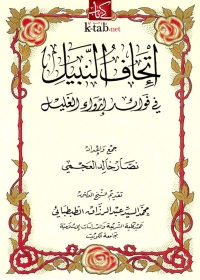 كتاب
k-tab.net
إتحاف النبيل
في فوائد إرواء الغليل
جمع وإعداد
نصار خالد العجمي
تقديم الشيخ الدكتور
محمد السيد عبد الرزاق الطبطبائي
عميد كلية الشريعة والدراسات الإسلامية
بجامعة الكويت